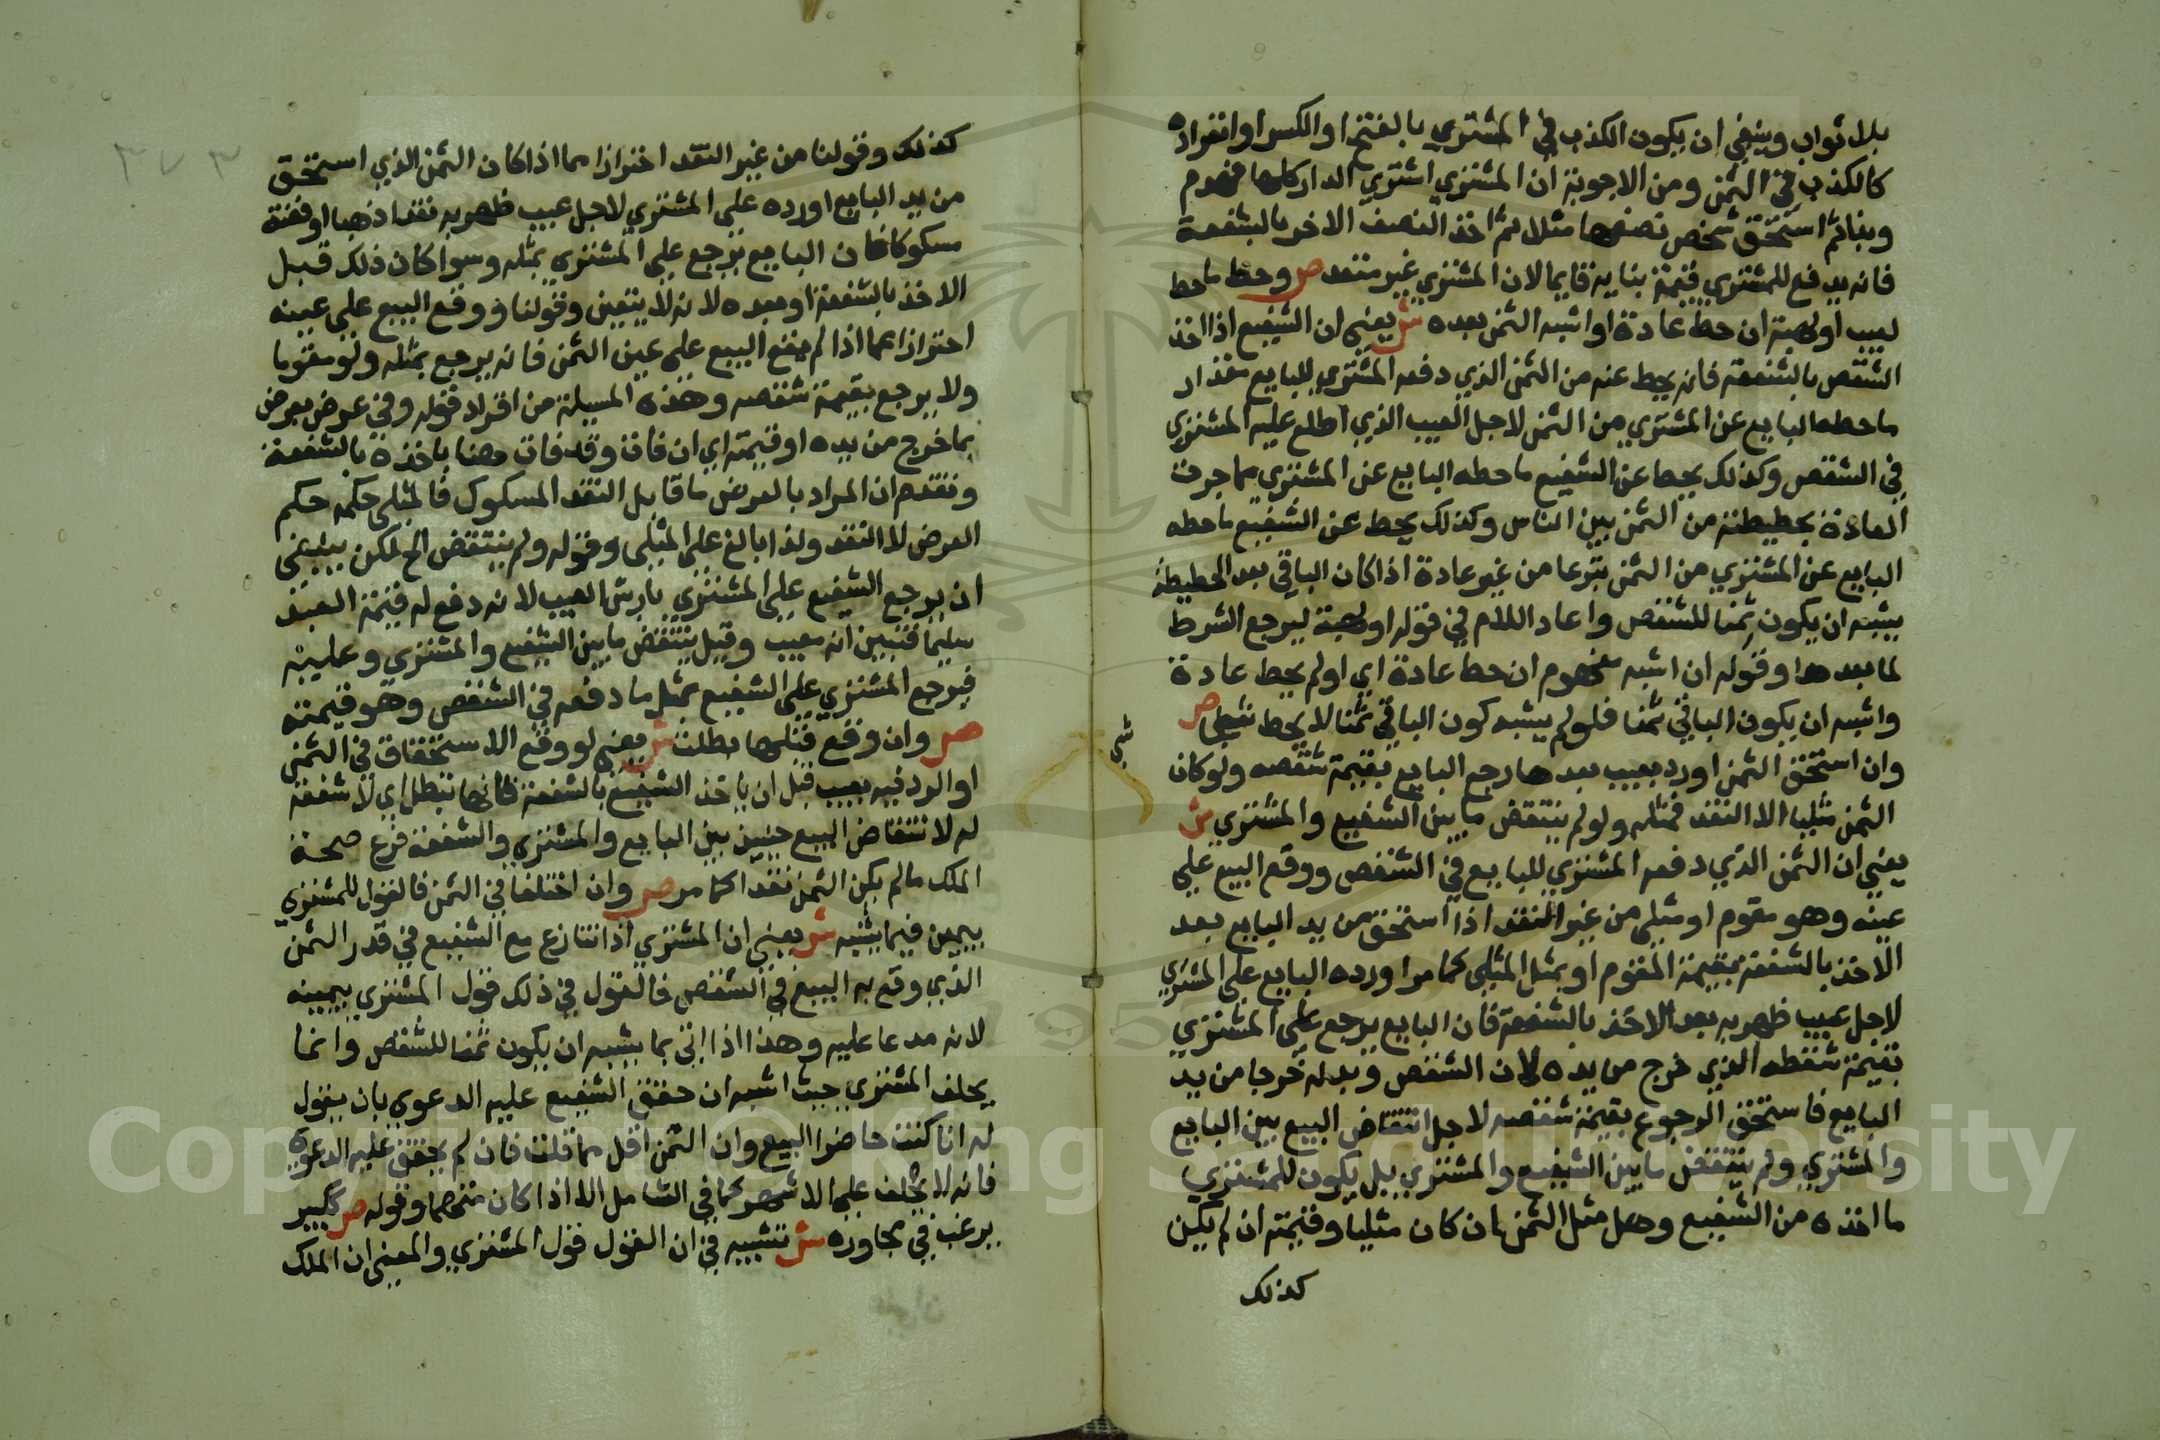 بلا ثواب وينبغي ان يكون الكذب في المشتري بالفتح او الكسر او انفراده
كالكذب في الثمن ومن الاجوبة ان المشتري اشتري الدار كلها فهدم
وبنا ثم استحق شخص نصفها مثلا ثم اخذ النصف الاخر بالشفعة
فانه يدفع للمشتري قيمة بنايه قايما لان المشتري غير متعد ص وحط ما حط
لعيب او لهبة ان حط عادة او اشبه الثمن بعده ش يعني ان الشفيع اذا اخذ
الشقص بالشفعة فانه يحط عنه من الثمن الذي دفعه المشتري للبايع مقدار
ما حطه البايع عن المشتري من الثمن لاجل العيب الذي اطلع عليه المشتري
في الشقص وكذلك يحط عن الشفيع ما حطه البايع عن المشتري مما جرت
العادة بحطيطته من الثمن بين الناس وكذلك يحط عن الشفيع ما حطه
البايع عن المشتري من الثمن تبرعا من غير عادة اذا كان الباقي بعد الحطيطة
يشبه ان يكون ثمنا للشقص واعاد اللام في قوله او لهبة ليرجع الشرط
لما بعدها وقوله ان اشبه مفهوم ان حط عادة اي او لم يحط عادة
واشبه ان يكون الباقي ثمنا فلو لم يشبه كون الباقي ثمنا لا يحط شي ص
وان استحق الثمن او رد بعيب بعدها رجع البايع بقيمة شقصه ولو كان
الثمن مثليا الا النقد فمثله ولو لم ينتقض ما بين الشفيع والمشتري ش
يعني ان الثمن الذي دفعه المشتري للبايع في الشقص ووقع البيع علي
عينه وهو مقوم او مثلي من غير النقد اذا استحق من يد البايع بعد
الاخذ بالشفعة بقيمة المقوم او بمثل المثلي كما مر او رده البايع علي المشتري
لاجل عيب ظهر به بعد الاخذ بالشفعة فان البايع يرجع علي المشتري
بقيمة شقصه الذي خرج من يده لان الشقص وبدله خرجا من يد
البايع فاستحق الرجوع بقيمة شقصه لاجل انتقاض البيع بين البايع
والمشتري ولم ينتقض ما بين الشفيع والمشتري بل يكون للمشتري
ما اخذه من الشفيع وهل مثل الثمن ان كان مثليا او قيمته ان لم يكن
كذلك
كذلك وقولنا من غير النقد احترازا مما اذا كان الثمن الذي استحق
من يد البايع او رده علي المشتري لاجل عيب ظهر به نقدا ذهبا او فضة
مسكوكا فان البايع يرجع علي المشتري بمثله وسوا كان ذلك قبل
الاخذ بالشفعة او بعده لانه لا يتعين وقولنا ووقع البيع علي عينه
احترازا عما اذا لم يقع البيع علي عين الثمن فانه يرجع بمثله ولو مقوما
ولا يرجع بقيمة شقصه وهذه المسيلة من افراد قوله وفي عرض بعرض
بما خرج من يده او قيمته اي ان فات وقد فات هنا باخذه بالشفعة
وتقدم ان المراد بالعرض ما قابل النقد المسكوك فالمثلي حكمه حكم
العرض لا النقد ولذا بالغ علي المثلي وقوله ولم ينتقض الخ لكن ينبغي
ان يرجع الشفيع علي المشتري بارش العيب لانه دفع له قيمة العبد
سليما فتبين انه معيب وقيل ينتقض ما بين الشفيع والمشتري وعليه
فيرجع المشتري علي الشفيع بمثل ما دفعه في الشقص وهو قيمته
ص وان وقع قبلها بطلت ش يعني لو وقع الاستحقاق في الثمن
او الرد فيه بعيب قبل ان ياخذ الشفيع بالشفعة فانها تبطل اي لا شفعة
له لانتقاض البيع حينيذ بين البايع والمشتري والشفعة فرع صحة
الملك ما لم يكن الثمن نقدا كما مر ص وان اختلفا في الثمن فالقول للمشتري
بيمين فيما يشبه ش يعني ان المشتري اذا تنازع مع الشفيع في قدر الثمن
الذي وقع به البيع في الشقص فالقول في ذلك قول المشتري بيمينه
لانه مدعا عليه وهذا اذا اتي بما يشبه ان يكون ثمنا للشقص وانما
يحلف المشتري حيث اشبه ان حقق الشفيع عليه الدعوي بان يقول
له انا كنت حاضرا البيع وان الثمن اقل مما قلت فان لم يحقق عليه الدعوي
فانه لا يحلف علي الاشهر كما في الشامل الا اذا كان متهما وقوله ص ككبير
يرغب في مجاوره ش تشبيه في ان القول قول المشتري والمعني ان الملك